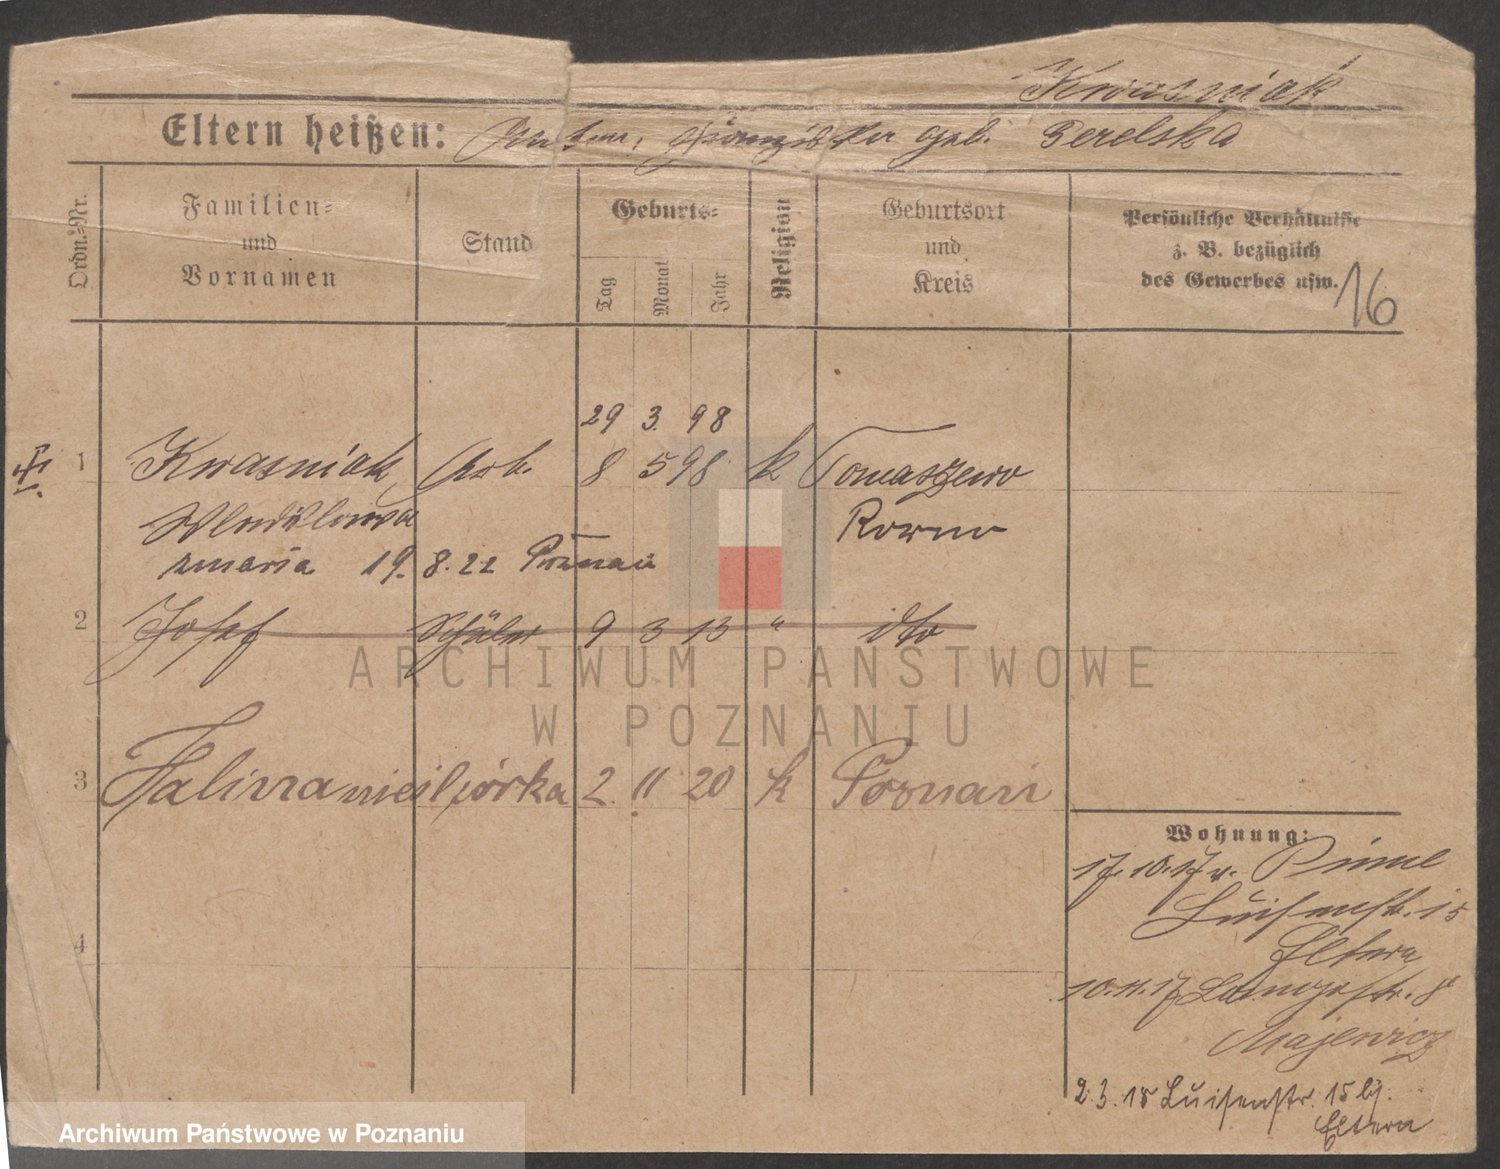 Kwasniak
Eltern heißen: geb. Perelska
Ordn.-Nr.
Familien-
und
Vornamen
Stand
Geburts-
Tag
Monat
Jahr
Religion
Geburtsort
und
Kreis
Persönliche Verhältnisse
z. B. bezüglich
des Gewerbes usw.
16
29 3. 98
1 Kwasniak Arb. 8 5 98 k Tomaszewo
Wladislawa
zmarła 19. 8. 22 Poznań
2 Josef Schüler 9 3 13 " dto
3 Halina nieś córka 2 11 20 k Poznań
4
Wohnung:
17. 10. 17 v.
Luisenstr. 15
Eltern
10. 11. 17 Langestr. 8
Majewicz
2. 3. 18 Luisenstr. 15
Eltern
ARCHIWUM PAŃSTWOWE
W POZNANIU
Archiwum Państwowe w Poznaniu